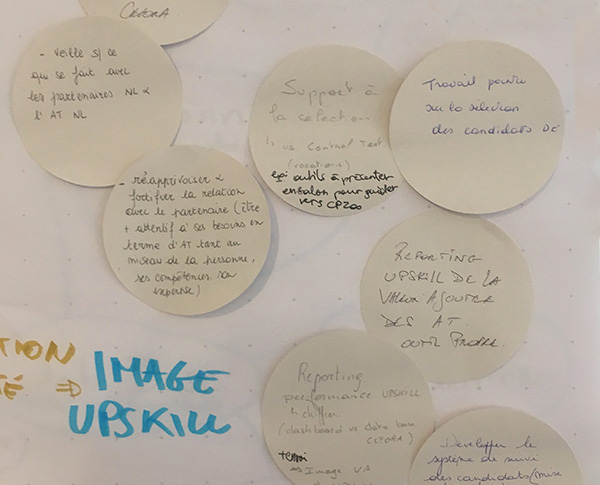 CETORA.
- Veille s/ ce
qui se fait avec
les partenaires NL &
l'AT NL
Support à
la selection
vs. Control Test
(vocations)
outils à présenter
en salon pour guider
vers CP200
Travail
sur la sélection
des candidats DE
- réapprivoiser &
fortifier la relation
avec le partenaire (être
+ attentif à ses besoins en
terme d'AT tant au
niveau de la personne,
ses compétences son
expertise)
REPORTING
UPSKILL DE LA
VALEUR AJOUTEE
DES AT.
OUTIL
TION
TÉ ⇒ IMAGE
UPSKILL
Reporting
performance UPSKILL
chiffrer
(dashboard vs data base
CETORA)
⇒ Image VA
Développer le
système de suivi
des candidats (mise